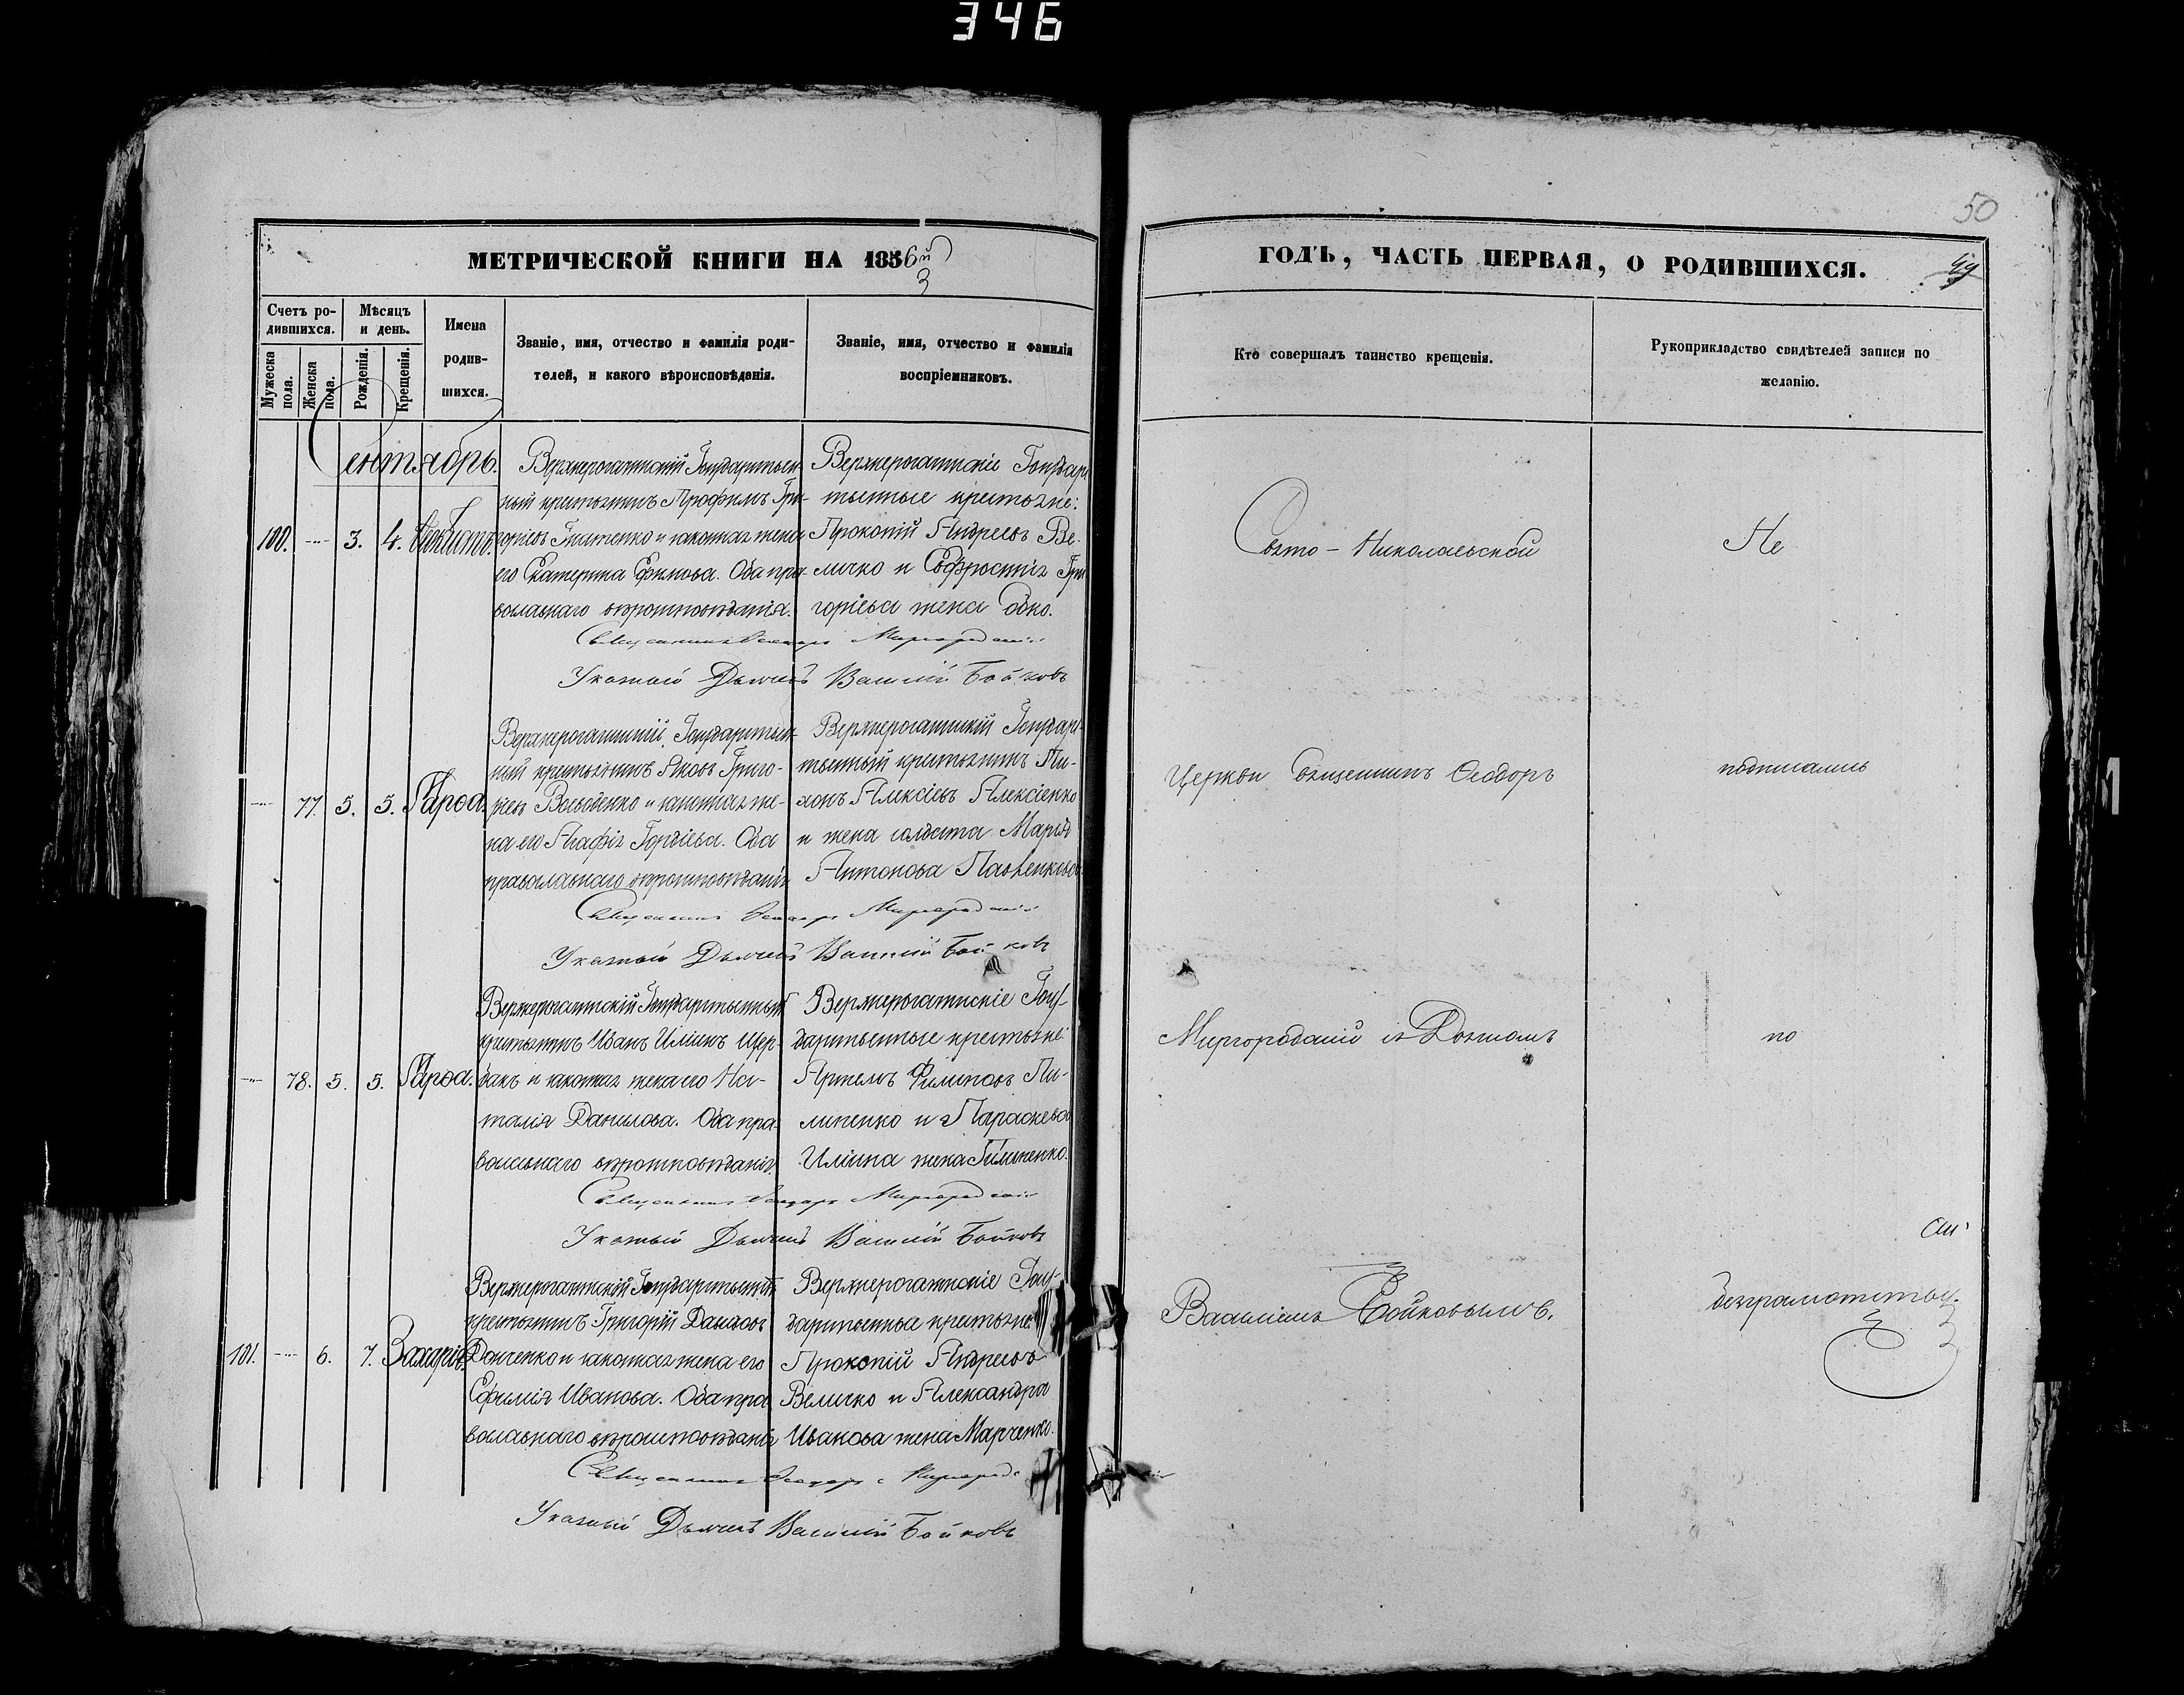 346
50
МЕТРИЧЕСКОЙ КНИГИ НА 1856й
3
ГОДЪ, ЧАСТЬ ПЕРВАЯ, О РОДИВШИХСЯ.
49
Счетъ ро-
дившихся.
Мѣсяцъ
и день.
Мужеска
пола.
Женска
пола.
Рожденія.
Крещенія.
Имена
родив-
шихся.
Званіе, имя, отчество и фамилія роди-
телей, и какого вѣроисповѣданія.
Званіе, имя, отчество и фамилія
воспріемниковъ.
Кто совершалъ таинство крещенія.
Рукоприкладство свидѣтелей записи по
желанію.
Сентябрь.
100.
3.
4.
Верхнерогачинскій Государствен-
ный крестьянинъ Трофимъ Гри-
горіевъ и законная жена
его Екатерина Ефимова. Оба пра-
вославнаго вѣроисповѣданія.
Верхнерогачинскіе Государ-
ственные крестьяне:
Прокопій Андреевъ Ве-
личко и Евфросинія Гри-
горіева жена
Священникъ Ѳеодоръ Миргородскій
Указный Дьячекъ Василій Бойковъ
77.
5.
5.
Верхнерогачинскій Государствен-
ный крестьянинъ Яковъ Григо-
ріевъ и законная же-
на его Агафія Гордіева. Оба
православнаго вѣроисповѣданія
Верхнерогачинскій Государ-
ственный крестьянинъ Ти-
хонъ Алексіевъ Алексіенко
и жена солдата Марія
Антонова
Священникъ Ѳеодоръ Миргородскій
Указный Дьячекъ Василій Бойковъ
78.
5.
5.
Верхнерогачинскій Государственный
крестьянинъ Иванъ Иліинъ Щер-
бакъ и законная жена его На-
талія Данилова. Оба пра-
вославнаго вѣроисповѣданія.
Верхнерогачинскіе Госу-
дарственные крестьяне:
Артемъ Филиповъ Пи-
липенко и Параскева
Иліина жена Пилипенко.
Священникъ Ѳеодоръ Миргородскій
Указный Дьячекъ Василій Бойковъ
101.
6.
7.
Захарія.
Верхнерогачинскій Государственный
крестьянинъ Григорій Даниловъ
Донченко и законная жена его
Ефимія Иванова. Оба пра-
вославнаго вѣроисповѣданія
Верхнерогачинскіе Госу-
дарственные крестьяне:
Прокопій Андреевъ
Величко и Александра
Иванова жена Марченко.
Священникъ Ѳеодоръ Миргородскій
Указный Дьячекъ Василій Бойковъ
Свято-Николаевской
Церкви Священникъ Ѳеодоръ
Миргородскій съ Дьячкомъ
Василіемъ Бойковымъ.
Не
подписались
по
безграмотству.